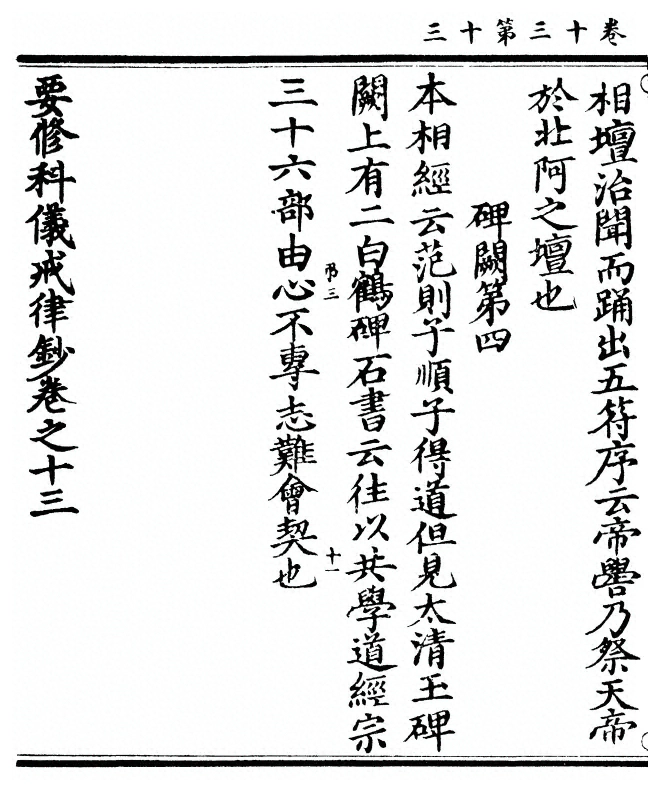 卷十三第十三
相壇治聞而踊出五符序云帝嚳乃祭天帝
於北阿之壇也
碑闕第四
本相經云范則子順子得道但見太清玉碑
闕上有二白鶴碑石書云往以共學道經宗
弔三
十一
三十六部由心不專志難會契也
要修科儀戒律鈔卷之十三